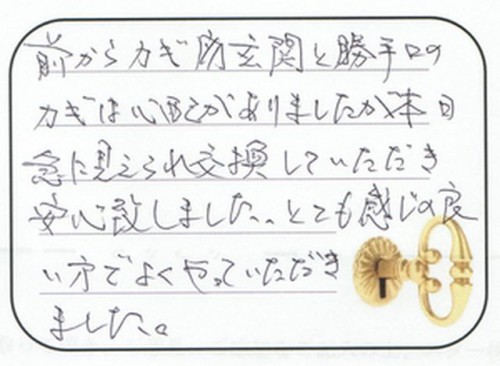 前からカギ 玄関と勝手口の
カギは心配がありましたが本日
急に見えられ交換していただき
安心致しました。とても感じの良
い方でよくやっていただき
ました。